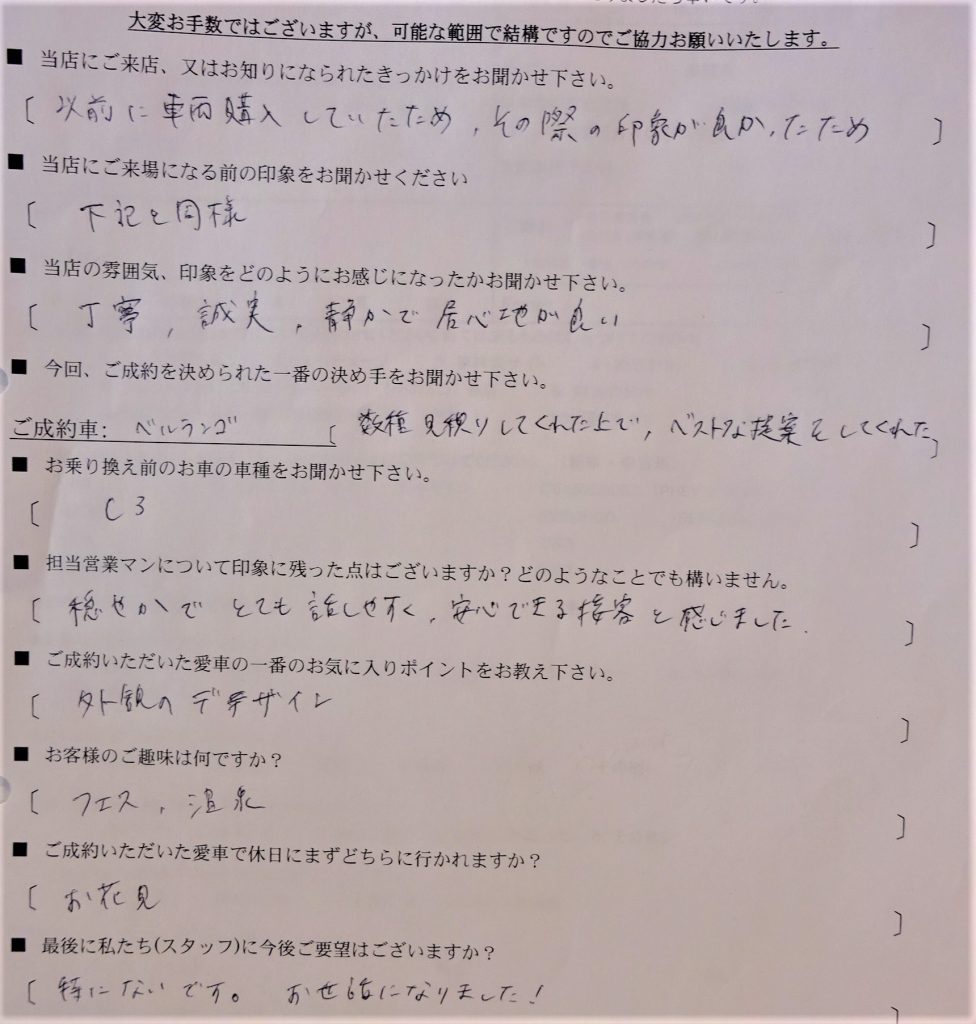 大変お手数ではございますが、可能な範囲で結構ですのでご協力お願いいたします。
■ 当店にご来店、又はお知りになられたきっかけをお聞かせ下さい。
[ 以前に車両購入していたため、その際の印象が良かったため ]
■ 当店にご来場になる前の印象をお聞かせください
[ 下記と同様 ]
■ 当店の雰囲気、印象をどのようにお感じになったかお聞かせ下さい。
[ 丁寧、誠実、静かで居心地が良い ]
■ 今回、ご成約を決められた一番の決め手をお聞かせ下さい。
ご成約車: ベルランゴ [ 数種見積りしてくれた上で、ベストな提案をしてくれた ]
■ お乗り換え前のお車の車種をお聞かせ下さい。
[ C3 ]
■ 担当営業マンについて印象に残った点はございますか？どのようなことでも構いません。
[ 穏やかでとても話しやすく、安心できる接客と感じました. ]
■ ご成約いただいた愛車の一番のお気に入りポイントをお教え下さい。
[ 外観のデザイン ]
■ お客様のご趣味は何ですか？
[ フェス、温泉 ]
■ ご成約いただいた愛車で休日にまずどちらに行かれますか？
[ お花見 ]
■ 最後に私たち(スタッフ)に今後ご要望はございますか？
[ 特にないです。 お世話になりました！ ]